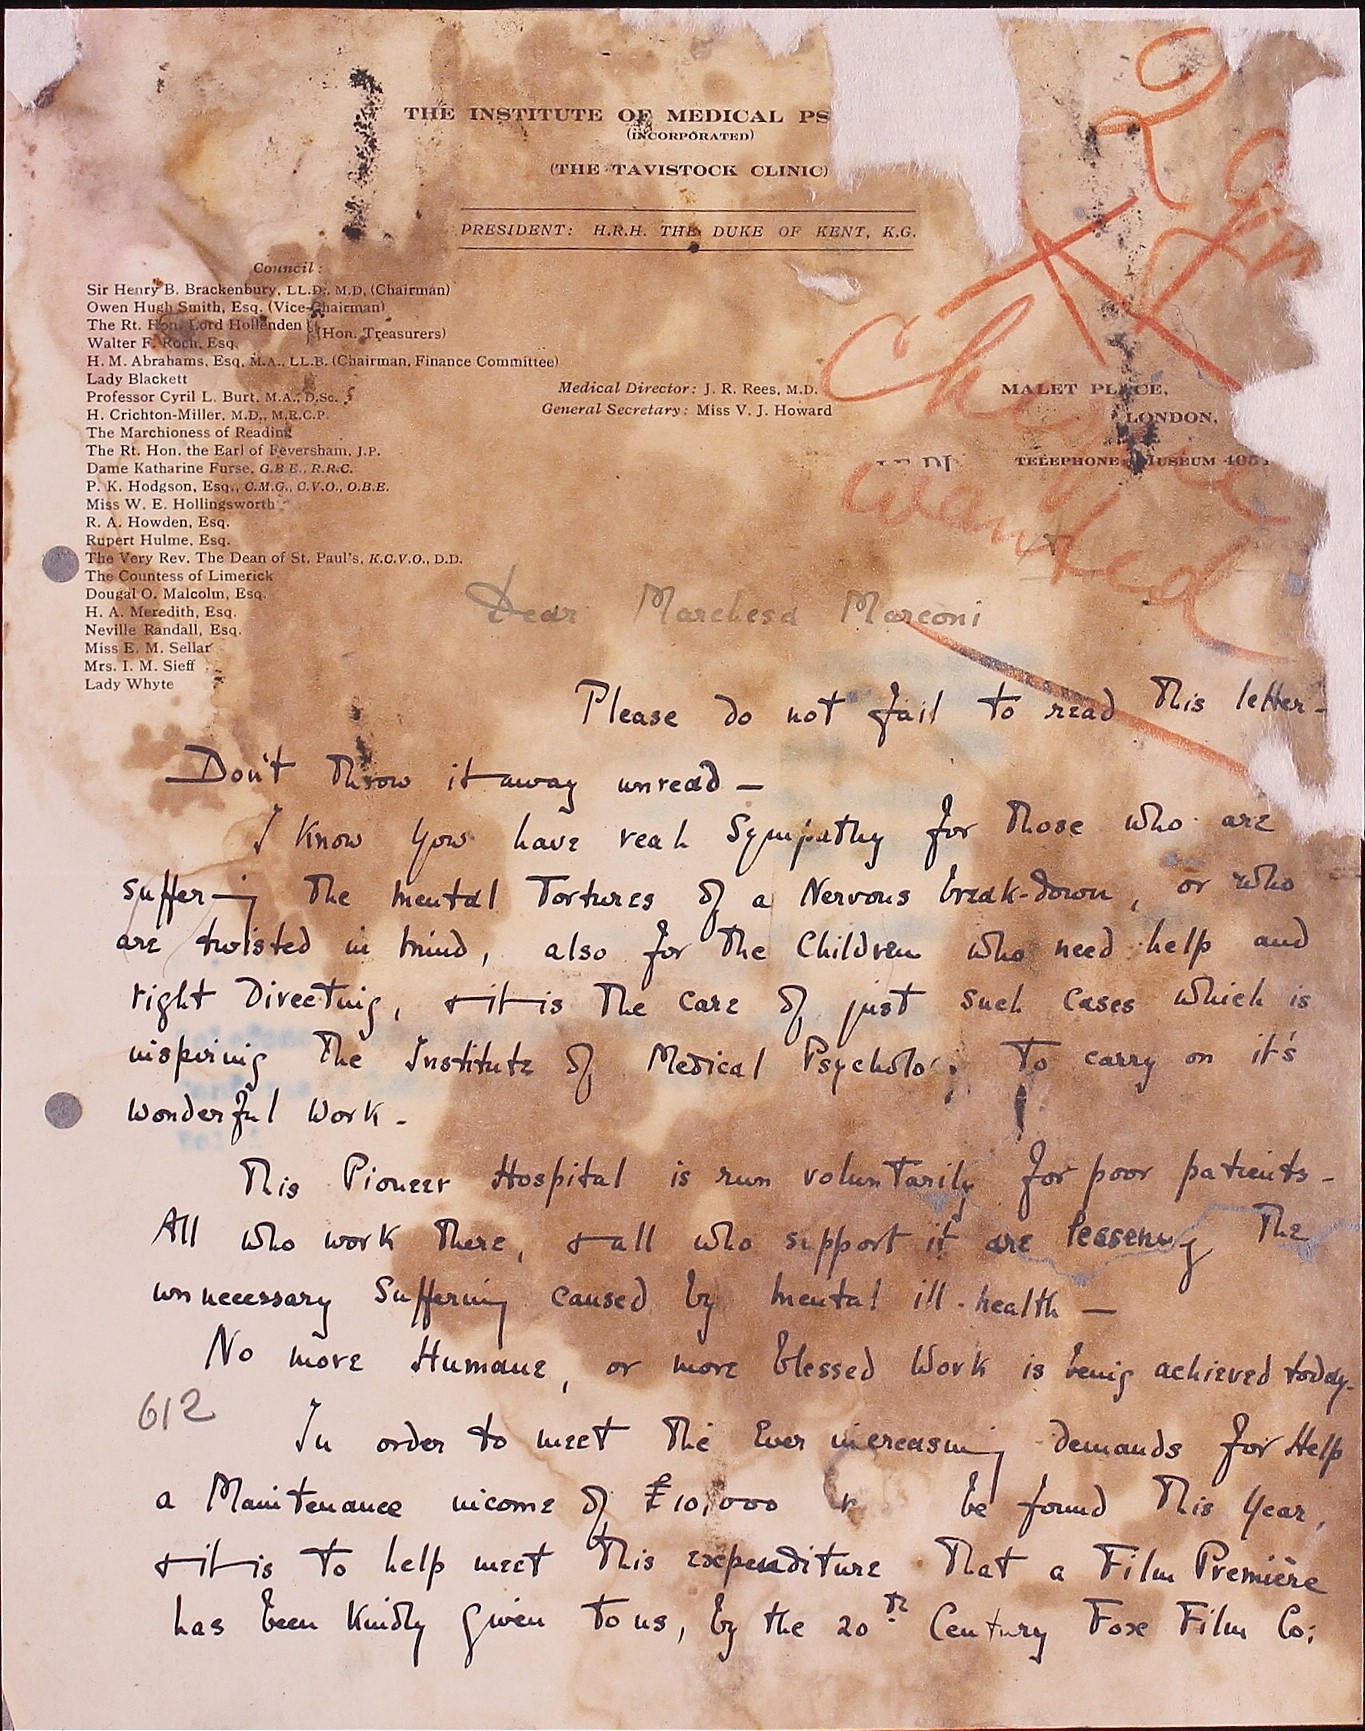 THE INSTITUTE OF MEDICAL PS
(INCORPORATED)
(THE TAVISTOCK CLINIC)
PRESIDENT: H.R.H. THE DUKE OF KENT, K.G.
Council:
Sir Henry B. Brackenbury, LL.D., M.D. (Chairman)
Owen Hugh Smith, Esq. (Vice-Chairman)
The Rt. Hon. Lord Hollenden
(Hon. Treasurers)
Walter F. Roch, Esq.
H. M. Abrahams, Esq. M.A., LL.B. (Chairman, Finance Committee)
Lady Blackett
Professor Cyril L. Burt, M.A., D.Sc.
H. Crichton-Miller, M.D., M.R.C.P.
The Marchioness of Reading
The Rt. Hon. the Earl of Feversham, J.P.
Dame Katharine Furse, G.B.E., R.R.C.
P. K. Hodgson, Esq., C.M.G., C.V.O., O.B.E.
Miss W. E. Hollingsworth
R. A. Howden, Esq.
Rupert Hulme, Esq.
The Very Rev. The Dean of St. Paul's, K.C.V.O., D.D.
The Countess of Limerick
Dougal O. Malcolm, Esq.
H. A. Meredith, Esq.
Neville Randall, Esq.
Miss E. M. Sellar
Mrs. I. M. Sieff
Lady Whyte
Medical Director: J. R. Rees, M.D.
General Secretary: Miss V. J. Howard
MALET PLACE,
LONDON,
TELEPHONE MUSEUM 4051
wanted
Dear Marchesa Marconi
Please do not fail to read this letter-
Don't throw it away unread —
I know you have real sympathy for those who are
suffering the mental tortures of a Nervous break-down, or who
are twisted in mind, also for the Children who need help and
right Directing, & it is the care of just such cases which is
inspiring the Institute of Medical Psycholo to carry on it's
wonderful work -
This Pioneer Hospital is run voluntarily for poor patients -
All who work there, & all who support it are lessening the
unnecessary suffering caused by mental ill-health —
No more Humane, or more blessed Work is being achieved today-
612
In order to meet the Ever increasing demands for Help
a Maintenance income of £10,000 be found this Year,
& it is to help meet this expenditure that a Film Première
has been kindly given to us, by the 20th Century Fox Film Co: